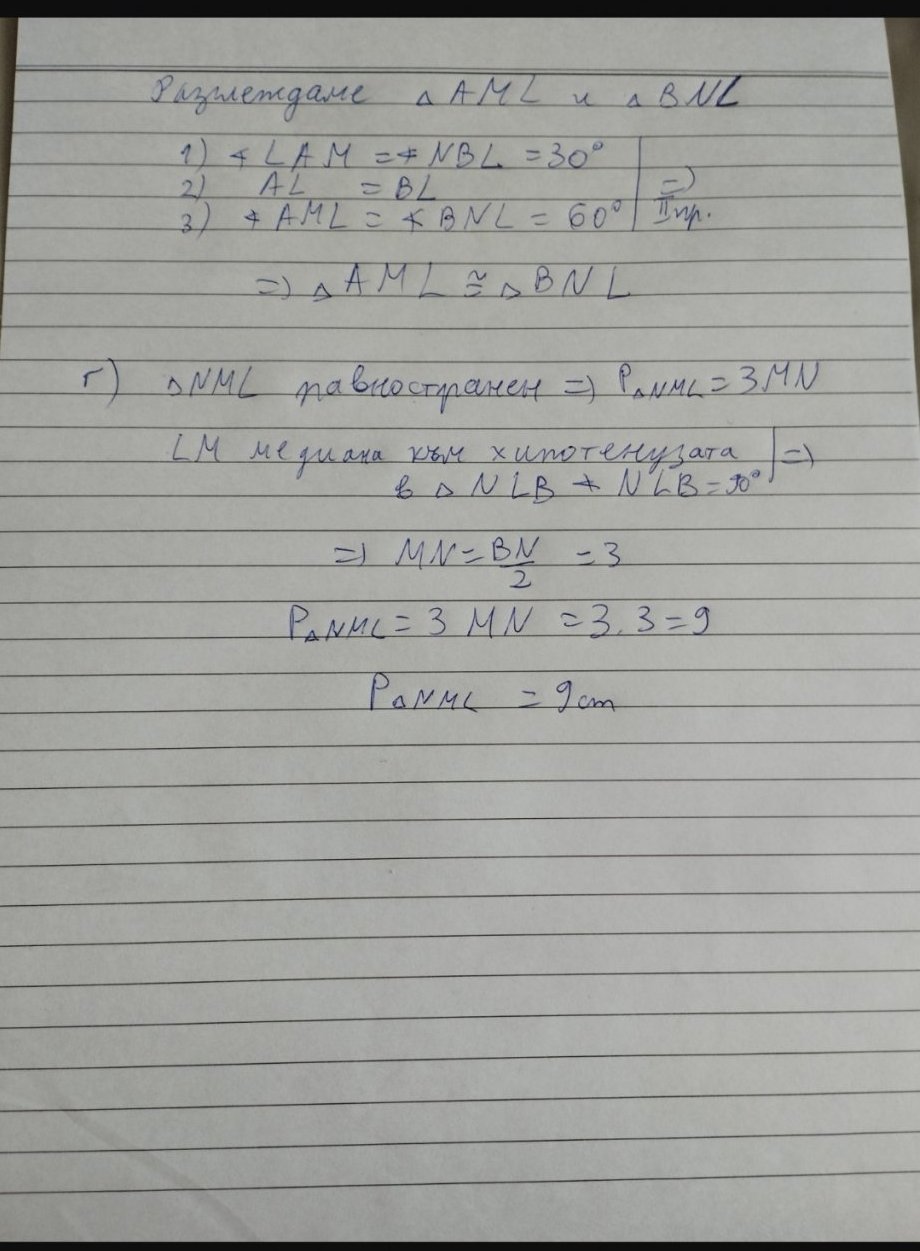 Разглеждаме △ AML и △ BNL
1) ∢ LAM = ∢ NBL = 30°
2) AL = BL
3) ∢ AML = ∢ BNL = 60° | => II пр.
=> △ AML ≅ △ BNL
г) △NML равностранен => P△NML = 3MN
LM медиана към хипотенузата | =>
в △ NLB ∢ NLB = 90°
=> MN = BN/2 = 3
P△NML = 3 MN = 3.3 = 9
P△NML = 9cm